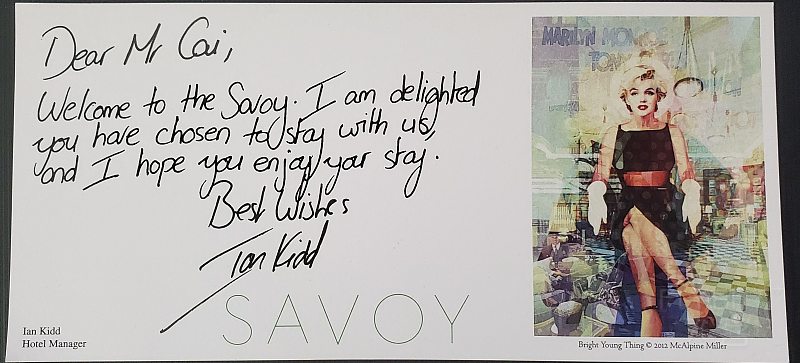 Dear Mr Cai,
Welcome to the Savoy. I am delighted
you have chosen to stay with us,
and I hope you enjoy your stay.
Best Wishes
Ian Kidd
SAVOY
Ian Kidd
Hotel Manager
MARILYN MONROE
TONY
Bright Young Thing © 2012 McAlpine Miller